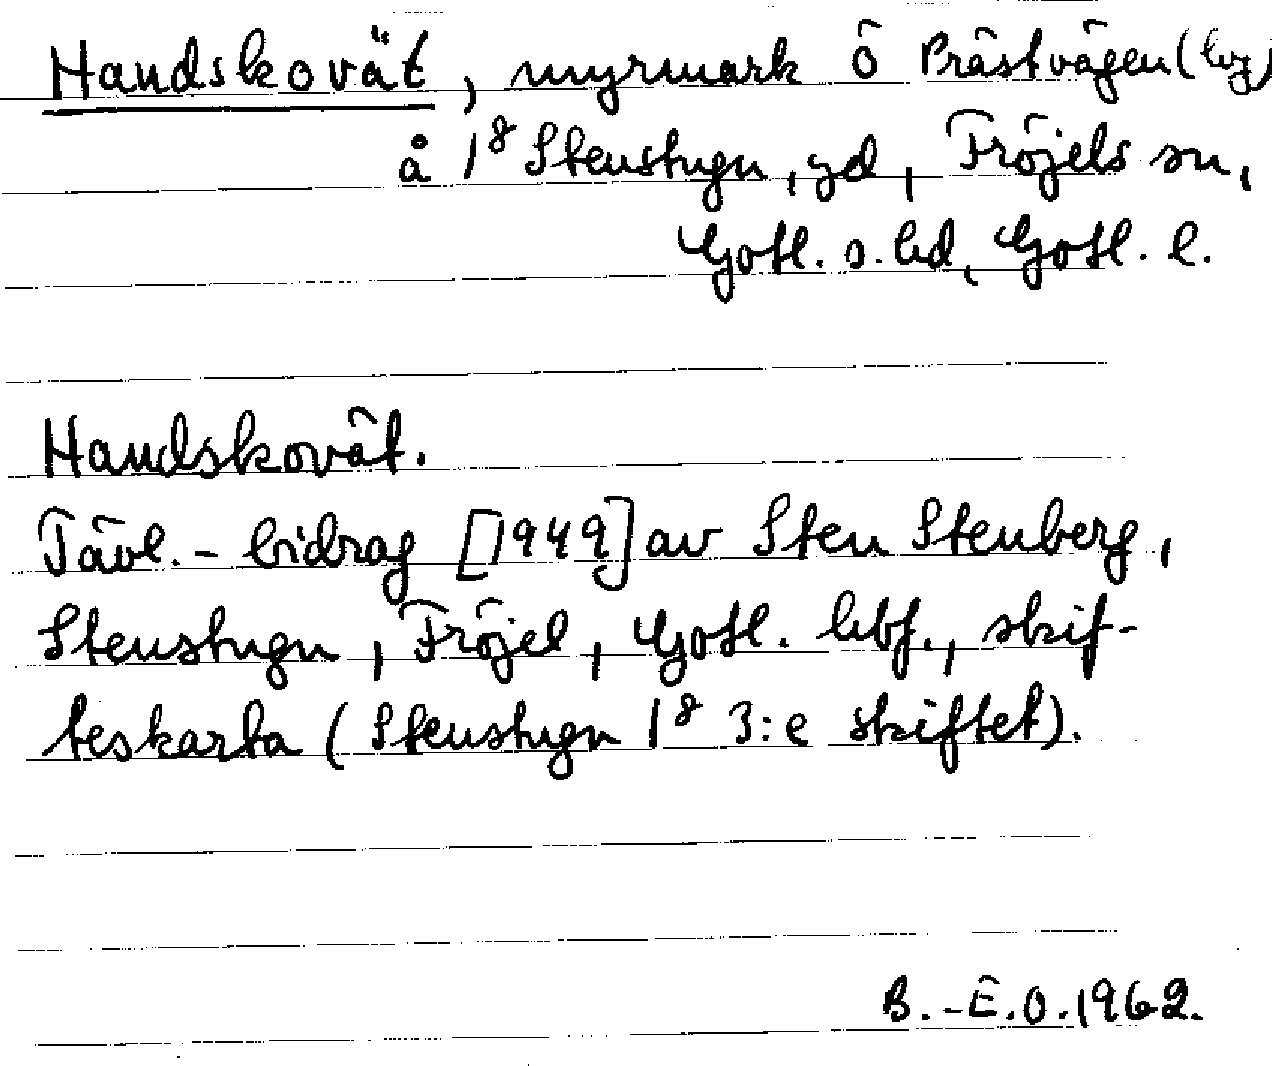 Handskovät, myrmark ö Prästvägen (lvg)
å 1⁸ Stenstugn, gd, Fröjels sn,
Gotl. s. hd, Gotl. l.
Handskovät.
Tävl.-bidrag [1949] av Sten Stenberg,
Stenstugn, Fröjel, Gotl. hbf., skif-
teskarta (Stenstugn 1⁸ 3:e skiftet).
B.-E.O. 1962.